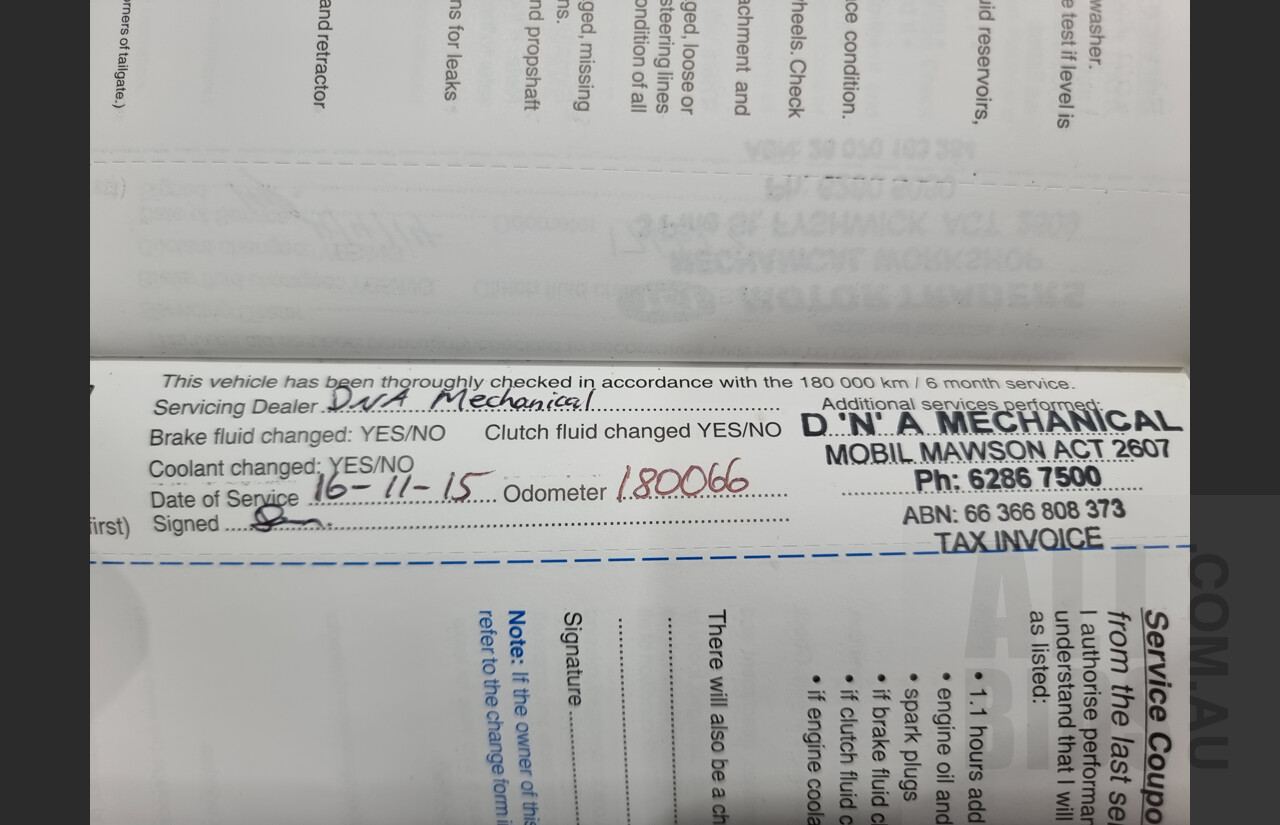 washer.
e test if level is
uid reservoirs,
ice condition.
heels. Check
achment and
ged, loose or
steering lines
ondition of all
ged, missing
ns.
nd propshaft
ns for leaks
and retractor
orners of tailgate.)
This vehicle has been thoroughly checked in accordance with the 180 000 km / 6 month service.
Servicing Dealer DNA Mechanical
Brake fluid changed: YES/NO Clutch fluid changed YES/NO
Coolant changed: YES/NO
Date of Service 16-11-15 Odometer 180066
first) Signed
Additional services performed:
D 'N' A MECHANICAL
MOBIL MAWSON ACT 2607
Ph: 6286 7500
ABN: 66 366 808 373
TAX INVOICE
Service Coupo
from the last se
I authorise performan
understand that I will
as listed:
• 1.1 hours add
• engine oil and
• spark plugs
• if brake fluid c
• if clutch fluid c
• if engine coola
There will also be a ch
Signature
Note: If the owner of this
refer to the change form i
ALL
BIDS
.COM.AU